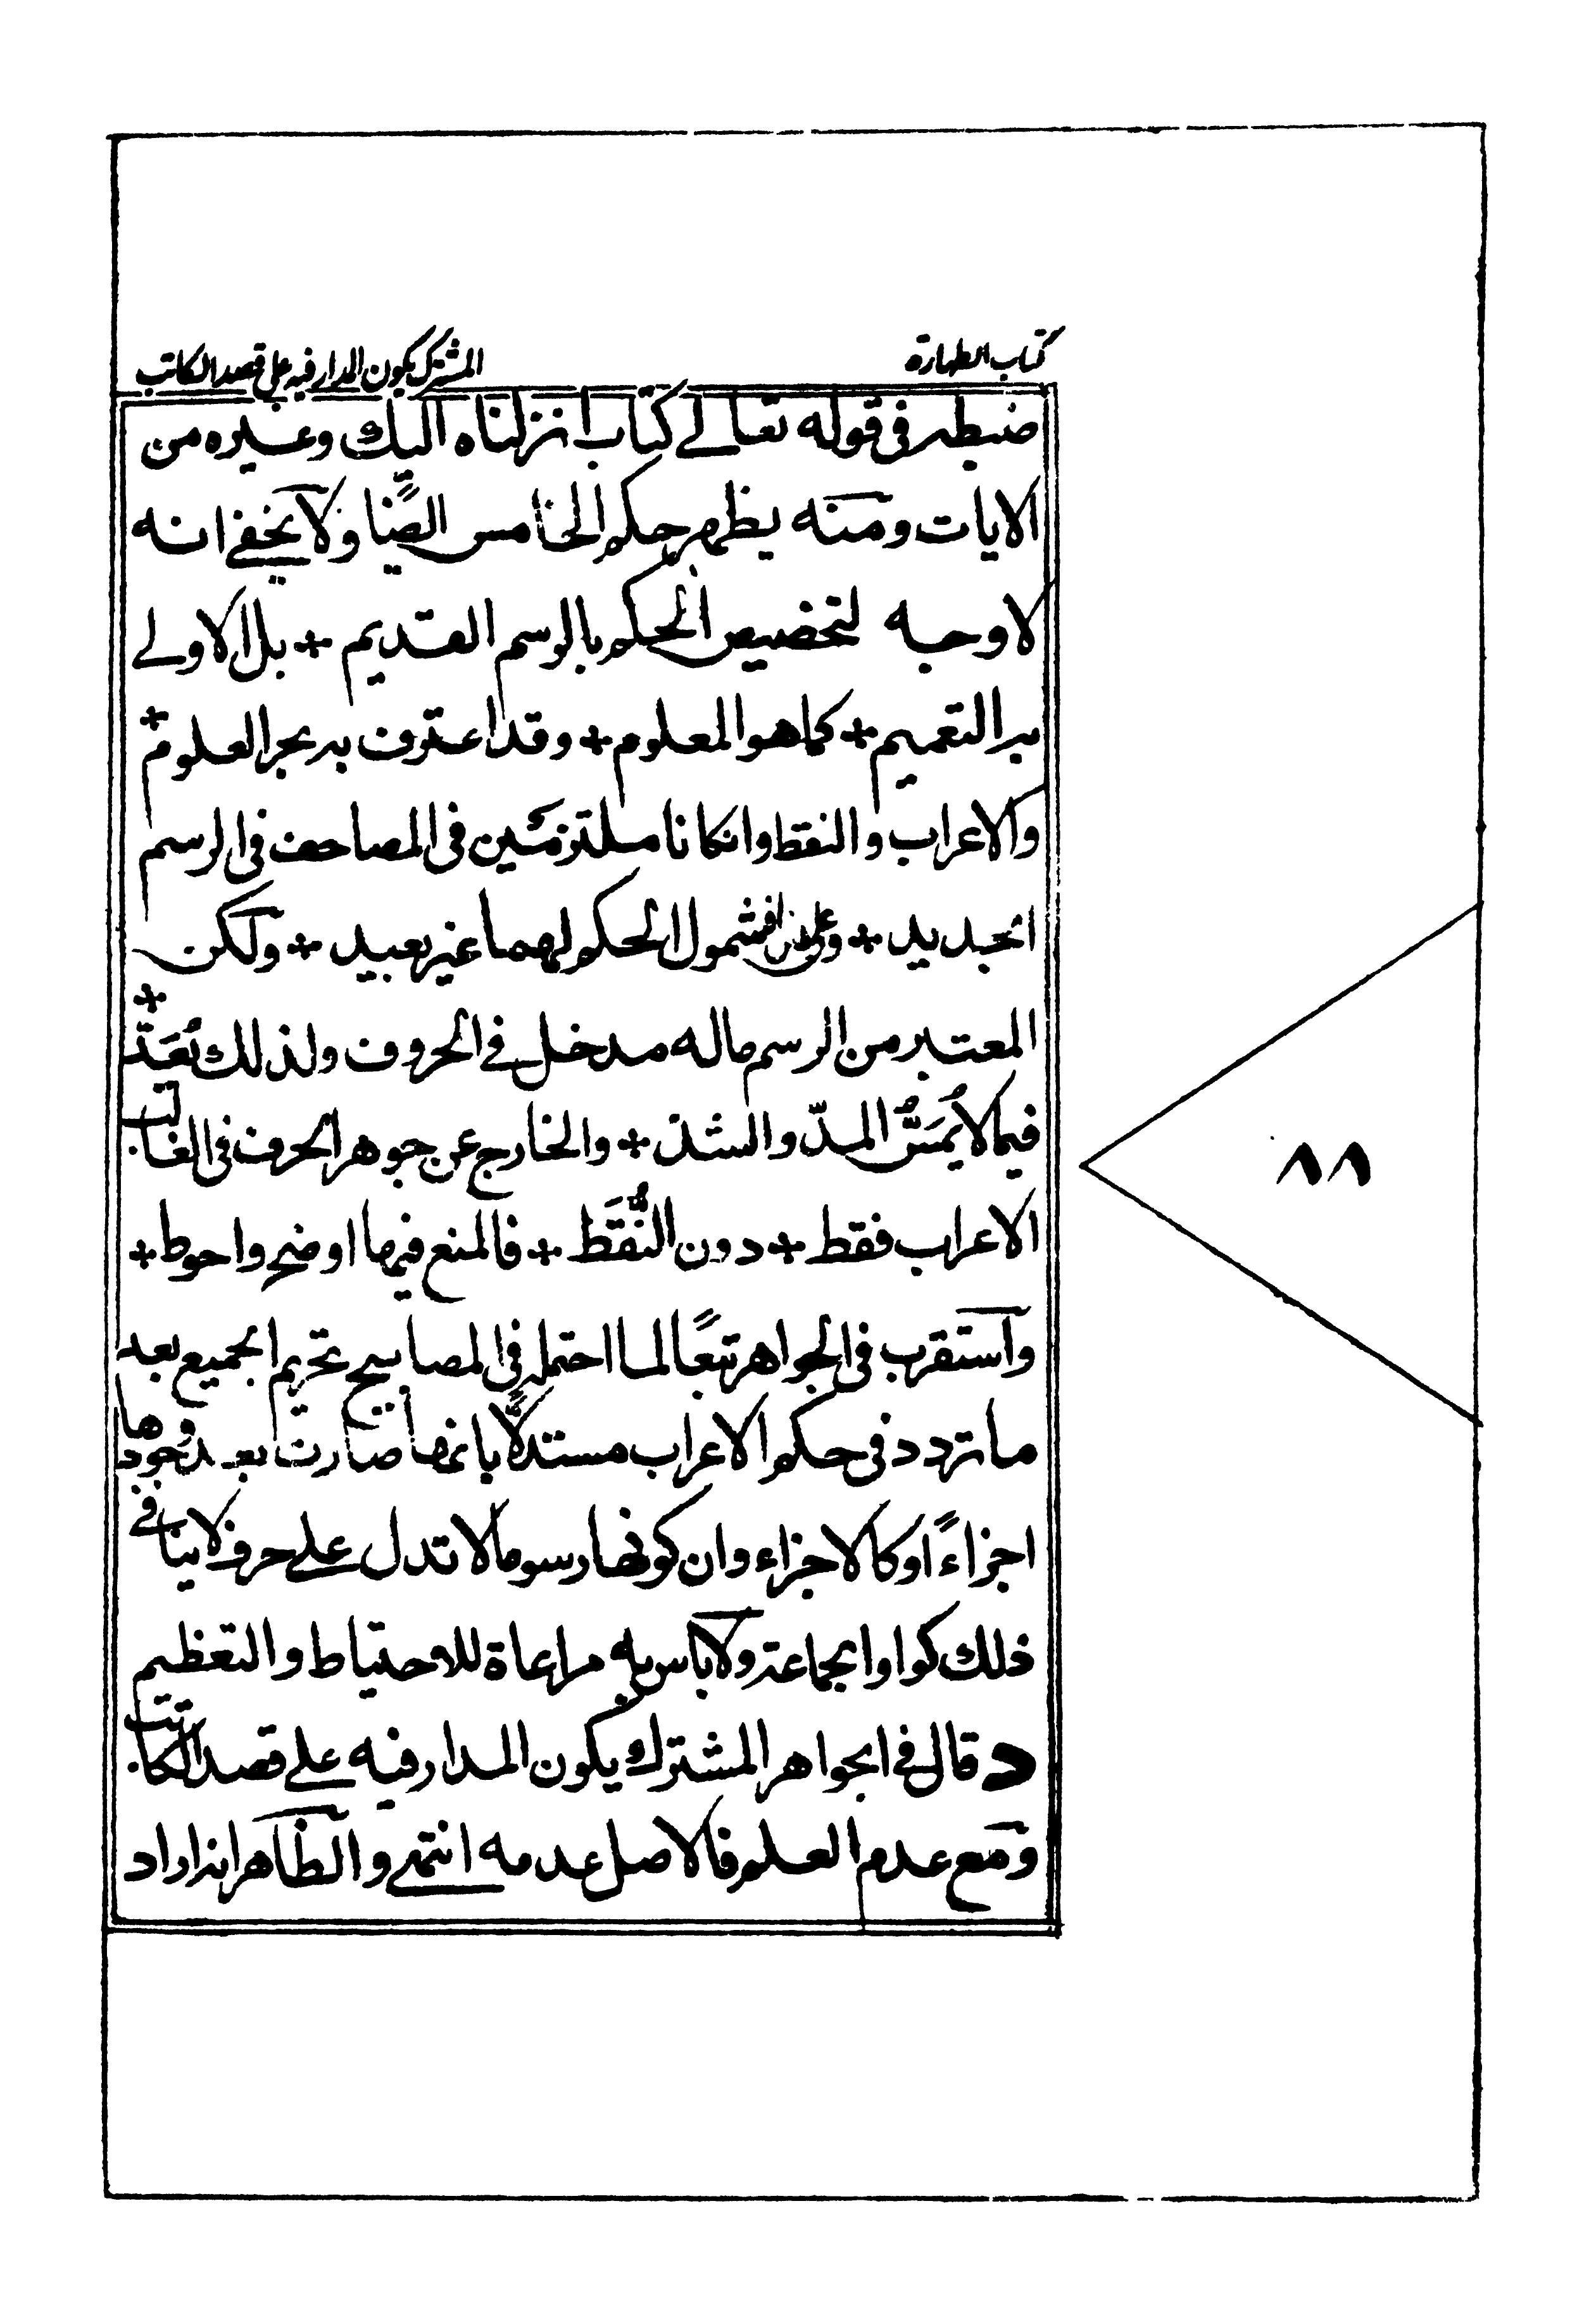 كتاب الطهارة
المشترك يكون المدار فيه على قصد الكاتب
ضبطه فى قوله تعالى كتاب انزلناه اليك وغيره من
الايات ومنه يظهر حكم الخامس ايضًا ولا يخفى انه
لا وجه لتخصيص الحكم بالرسم القديم + بل الاولى
التعميم + كما هو المعلوم + وقد اعترف به بحر العلوم +
والاعراب والنقط وان كانا ملتزمَين فى المصاحف فى الرسم
الجديد + وعلى هذا فشمول الحكم لهما غير بعيد + ولكن
المعتبر من الرسم ماله مدخل فى الحروف ولذلك يُعَدّ +
فيما لا يُمَسُّ المدّ والشد + والخارج عن جوهر الحرف فى الغالب
الاعراب فقط + دون النُّقَط + فالمنع فيها اوضح واحوط +
واستقرب فى الجواهر تبعًا لما احتمله فى المصابيح تحريم الجميع بعد
ما تردد فى حكم الاعراب مستدلًّا بانها صارت بعد وجودها
اجزاءً او كالاجزاء وان كونها رسوما لا تدل على حرف لا ينافى
ذلك كواو الجماعة ولا باس به مراعاة للاحتياط والتعظيم
د قال فى الجواهر المشترك يكون المدار فيه على قصد الكاتب
ومع عدم العلم فالاصل عدمه انتهى والظاهر انه اراد
٨٨